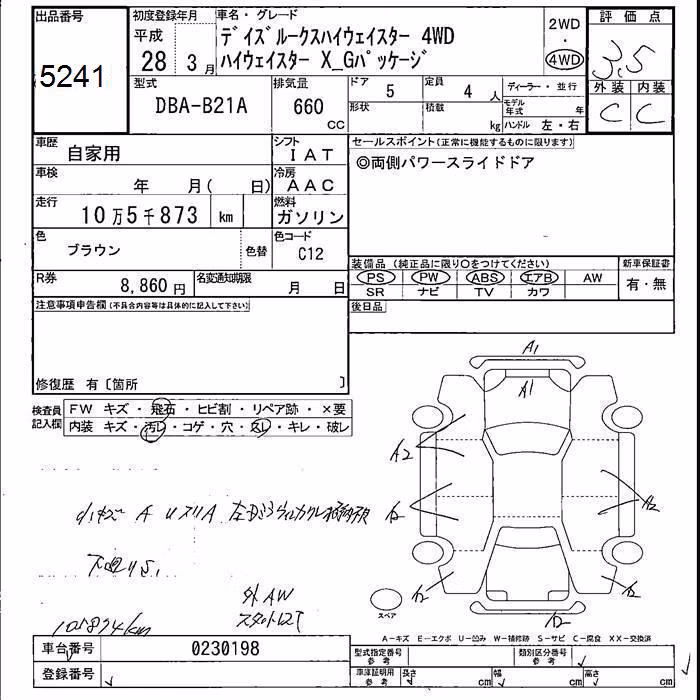 出品番号
5241
初度登録年月
平成
28 3月
車名・グレード
デイズルークスハイウェイスター 4WD
ハイウェイスター X_Gパッケージ
2WD
・
4WD
評価点
3.5
外装 内装
C C
型式
DBA-B21A
排気量
660
CC
ドア
5
定員
4 人
形状
積載
kg
ディーラー・並行
モデル年式 年
ハンドル 左・右
車歴
自家用
シフト
IAT
車検
年 月( 日)
冷房
AAC
走行
10万5千873 km
燃料
ガソリン
色
ブラウン
色替
色コード
C12
R券
8,860円
名変通知期限
月 日
セールスポイント(正常に機能するものに限ります)
◎両側パワースライドドア
装備品(純正品に限り○をつけてください)
PS PW ABS エアB AW
SR ナビ TV カワ
新車保証書
有・無
後日品
注意事項申告欄(不具合内容等は具体的に記入して下さい)
修復歴 有〔箇所 〕
検査員記入欄
FW キズ・飛石・ヒビ割・リペア跡・×要
内装 キズ・汚レ・コゲ・穴・スレ・キレ・破レ
A1
A1
A2
外AW
105874km
スペア
A-キズ E-エクボ U-凹み W-補修跡 S-サビ C-腐食 XX-交換済
車台番号
0230198
登録番号
型式指定番号
参考
類別区分番号
参考
車庫証明用
参考
長さ cm
幅 cm
高さ cm